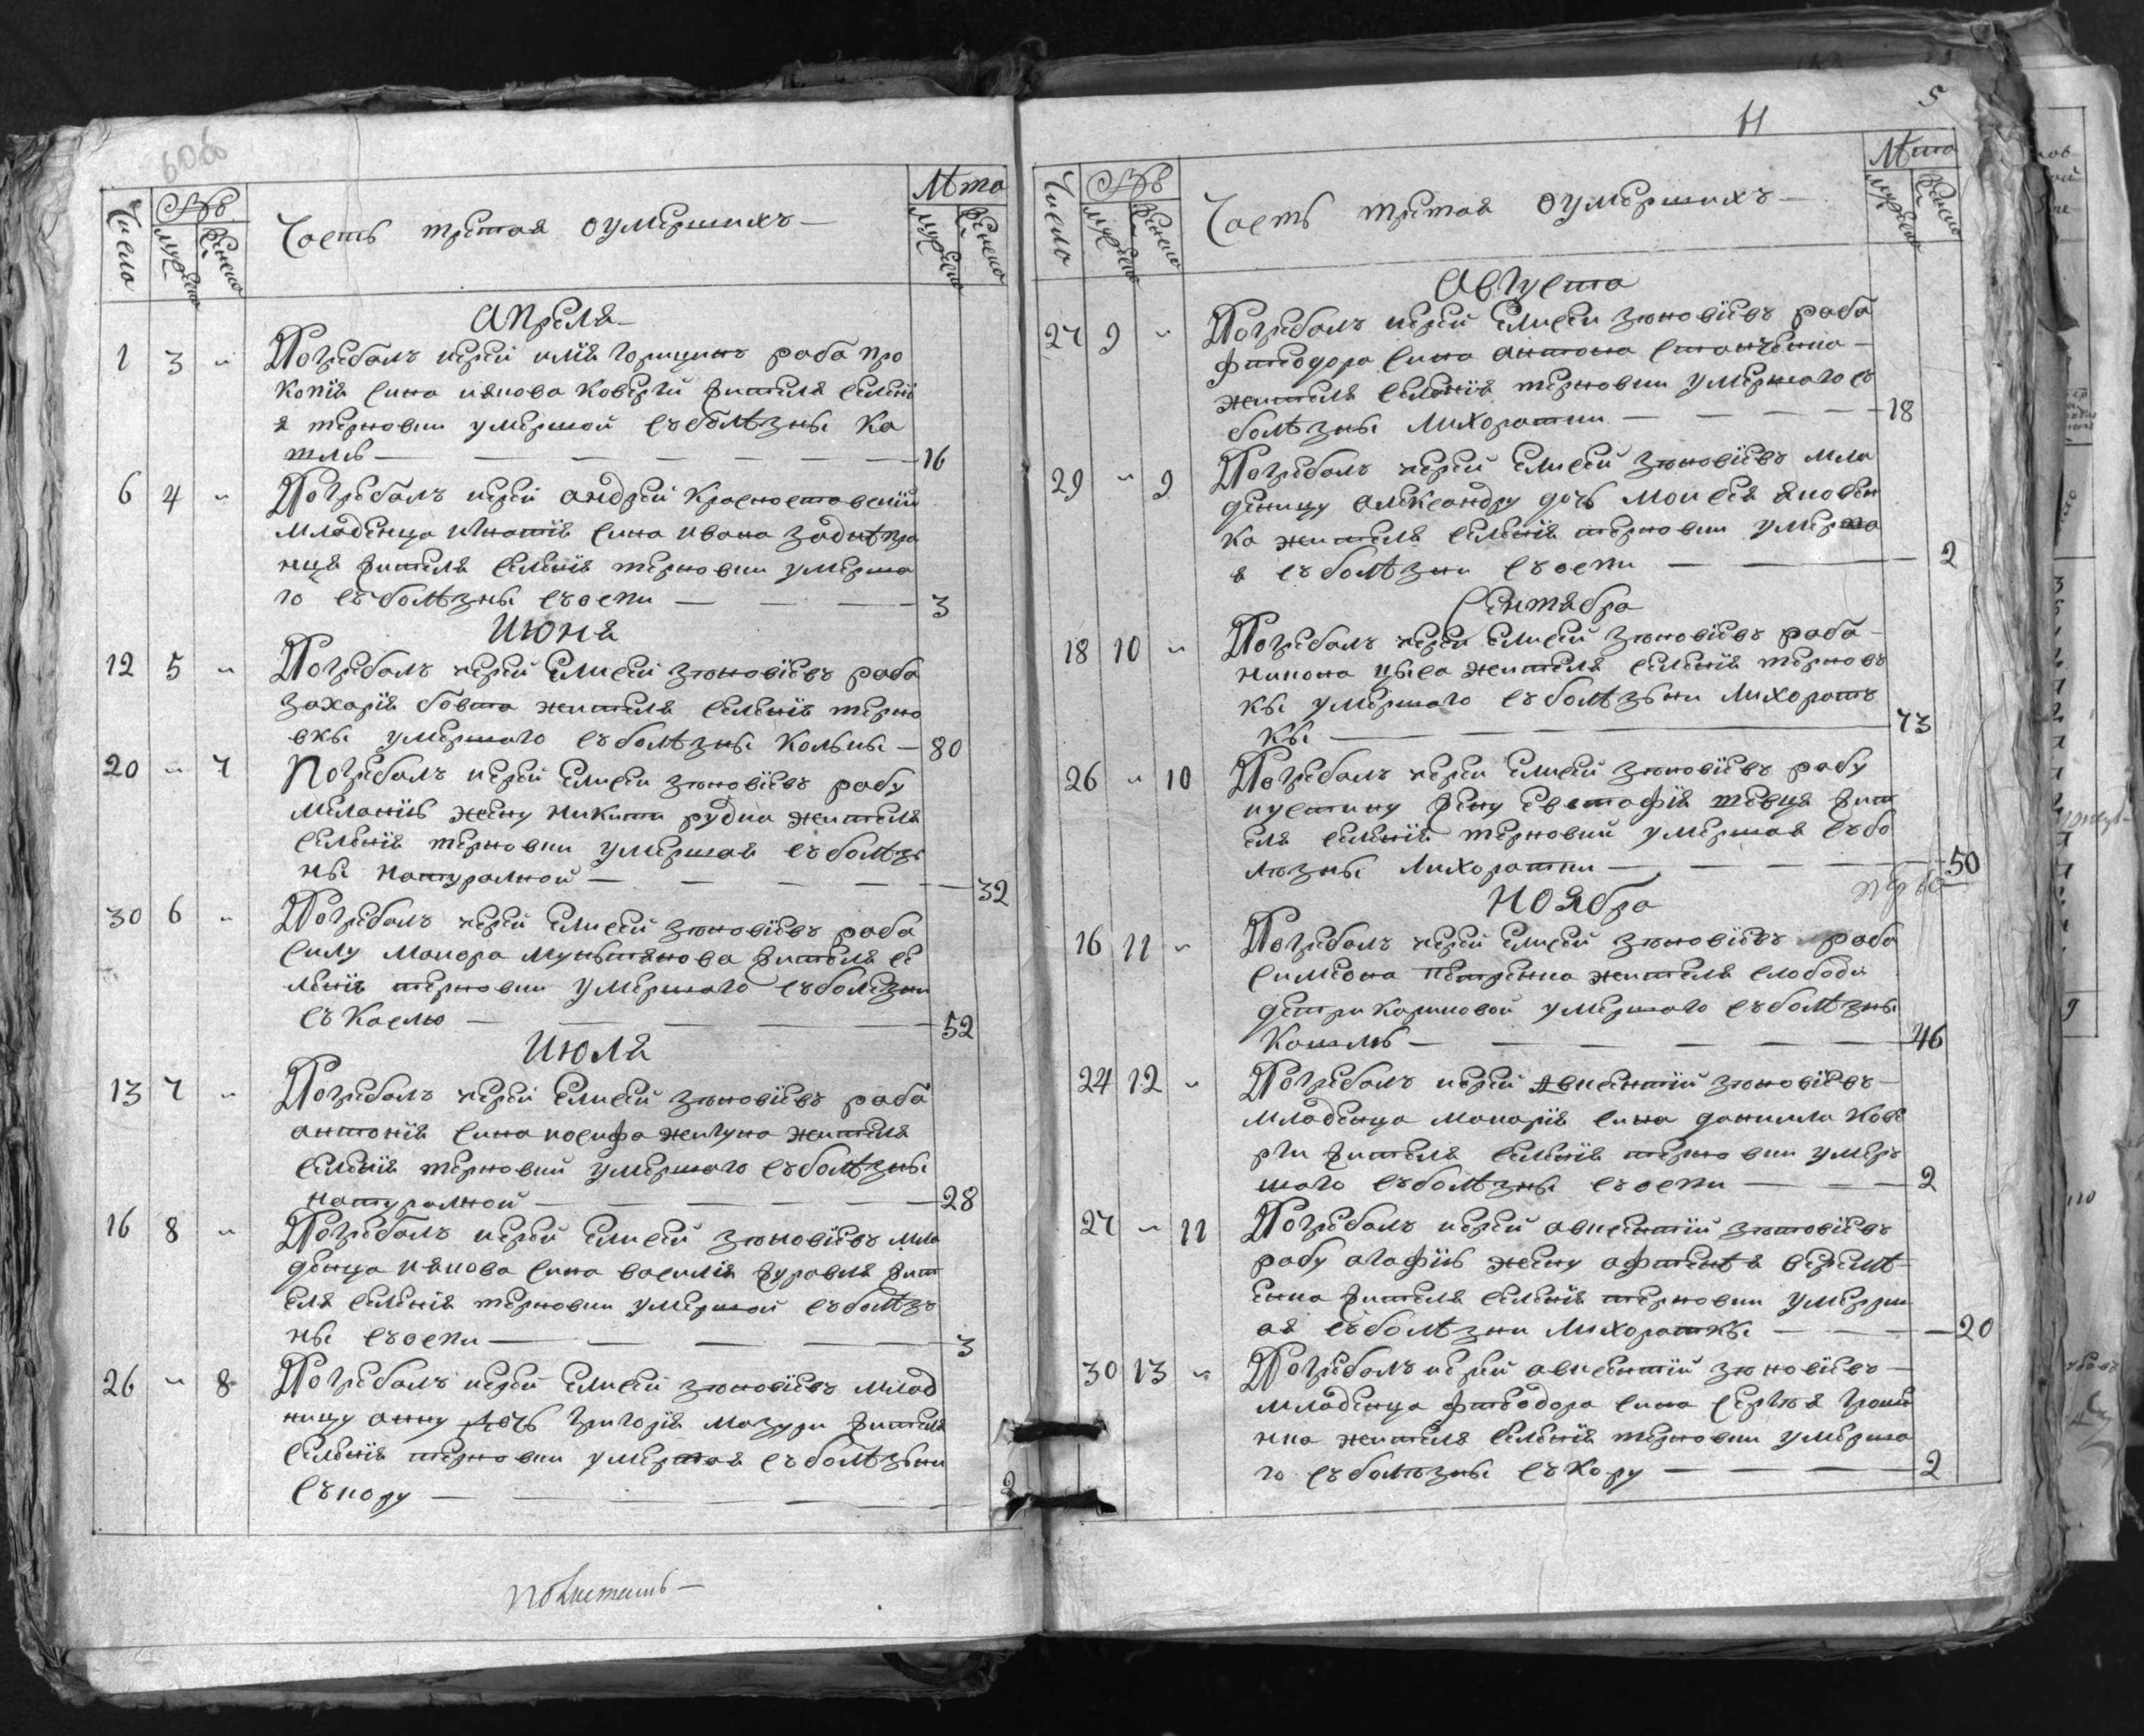 Число
№
мужеска
женска
Часть третая о умершихъ
Лѣта
мужеска
женска
Апреля
1 3 „ Погребалъ иерей илія горицинъ раба про
копія сина иякова коверги жителя селені
я терновки умершой съ болѣзны ка
шль 16
6 4 „ Погребалъ иерей андрей красноставскій
младенца игнатія сина ивана заднѣпра
нця жителя селенія терновки умерша
го съ болѣзны съ оспи 3
Июня
12 5 „ Погребалъ иерей елисей зѣновіевъ раба
захарія бовта жителя селенія терно
вки умершаго съ болѣзны кольки 80
20 „ 7 Погребалъ иерей елисей зѣновіевъ рабу
меланію жену никити рудка жителя
селенія терновки умершая съ болѣз
ны натуралной 32
30 6 „ Погребалъ иерей елисей зѣновіевъ раба
силу макара мунтянова жителя се
ленія терновки умершаго съ болезни
съ каслю 52
Июля
13 7 „ Погребалъ иерей елисей зѣновіевъ раба
антонія сина иосифа жигуна жителя
селенія терновки умершаго съ болѣзны
натуралной 28
16 8 „ Погребалъ иерей елисей зѣновіевъ мла
денца иякова сина василія журавля жит
еля селенія терновки умершой съ болѣз
ны съ оспи 3
26 „ 8 Погребалъ иерей елисей зѣновіевъ млад
ницу анну дочь григорія мазури жителя
селенія терновки умершая съ болѣзьни
съ кору 2
5
Число
№
мужеска
женска
Часть третая о умершихъ
Лѣта
мужеска
женска
Августа
27 9 „ Погребалъ иерей елисеи зѣновіевъ раба
фтеодора сина антона степченка
жителя селенія терновки умершаго съ
болѣзны лихоратки 18
29 „ 9 Погребалъ иерей елисей зѣновіевъ мла
деницу александру дочь моисея яковен
ка жителя селенія терновки умерша
я съ болѣзни съ оспи 2
Сентабра
18 10 „ Погребалъ иерей елисей зѣновіевъ раба
никона цыса жителя селенія терновъ
кы умершаго съ болѣзьни лихоратъ
кы 73
26 „ 10 Погребалъ иерей елисей зѣновіевъ рабу
иустину жену евстафія шевця жит
еля селенія терновки умершая съ бо
лѣзны лихоратки 50
Ноября
16 11 „ Погребалъ иерей елисей зѣновіевъ раба
симеона петренка жителя слободи
умершаго съ болѣзны
кашль 46
24 12 „ Погребалъ иерей авксентій зѣновіевъ
младенца макарія сина даниила кове
рги жителя селенія терновки умеръ
шаго съ болѣзны съ оспи 2
27 „ 11 Погребалъ иерей авксентій зѣновіевъ
рабу агафію жену афтенѣя веремѣ
енка жителя селенія терновки умерш
ая съ болѣзни лихораткы 20
30 13 „ Погребалъ иерей авксентій зѣновіевъ
младенца фтеодора сина сергѣя
жителя селенія терновки умерша
го съ болѣзны съ кору 2